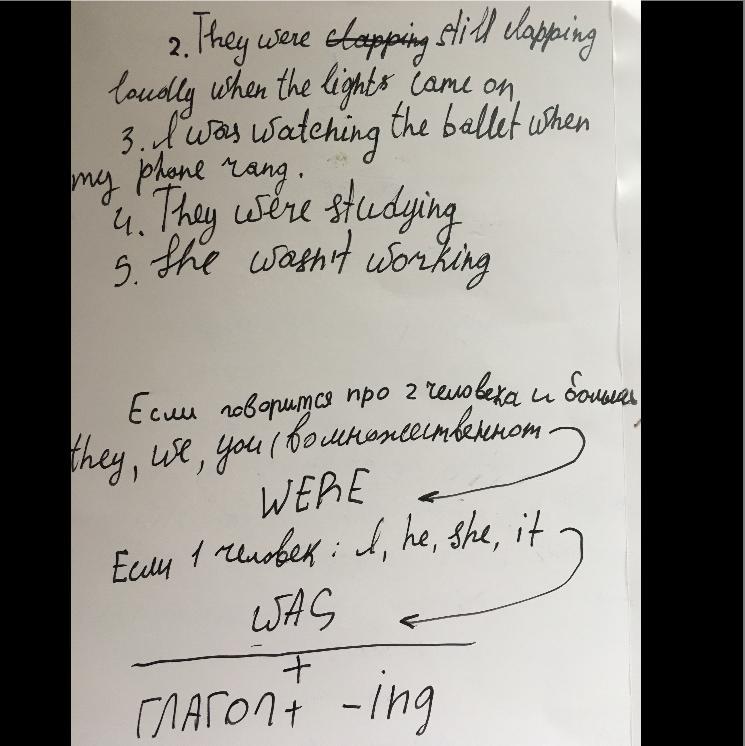 2. They were clapping still clapping
loudly when the lights came on
3. I was watching the ballet when
my phone rang.
4. They were studying
5. She wasn't working
Если говорится про 2 человека и больше
they, we, you (во множественном
WERE
Если 1 человек: I, he, she, it
WAS
+
ГЛАГОЛ + -ing